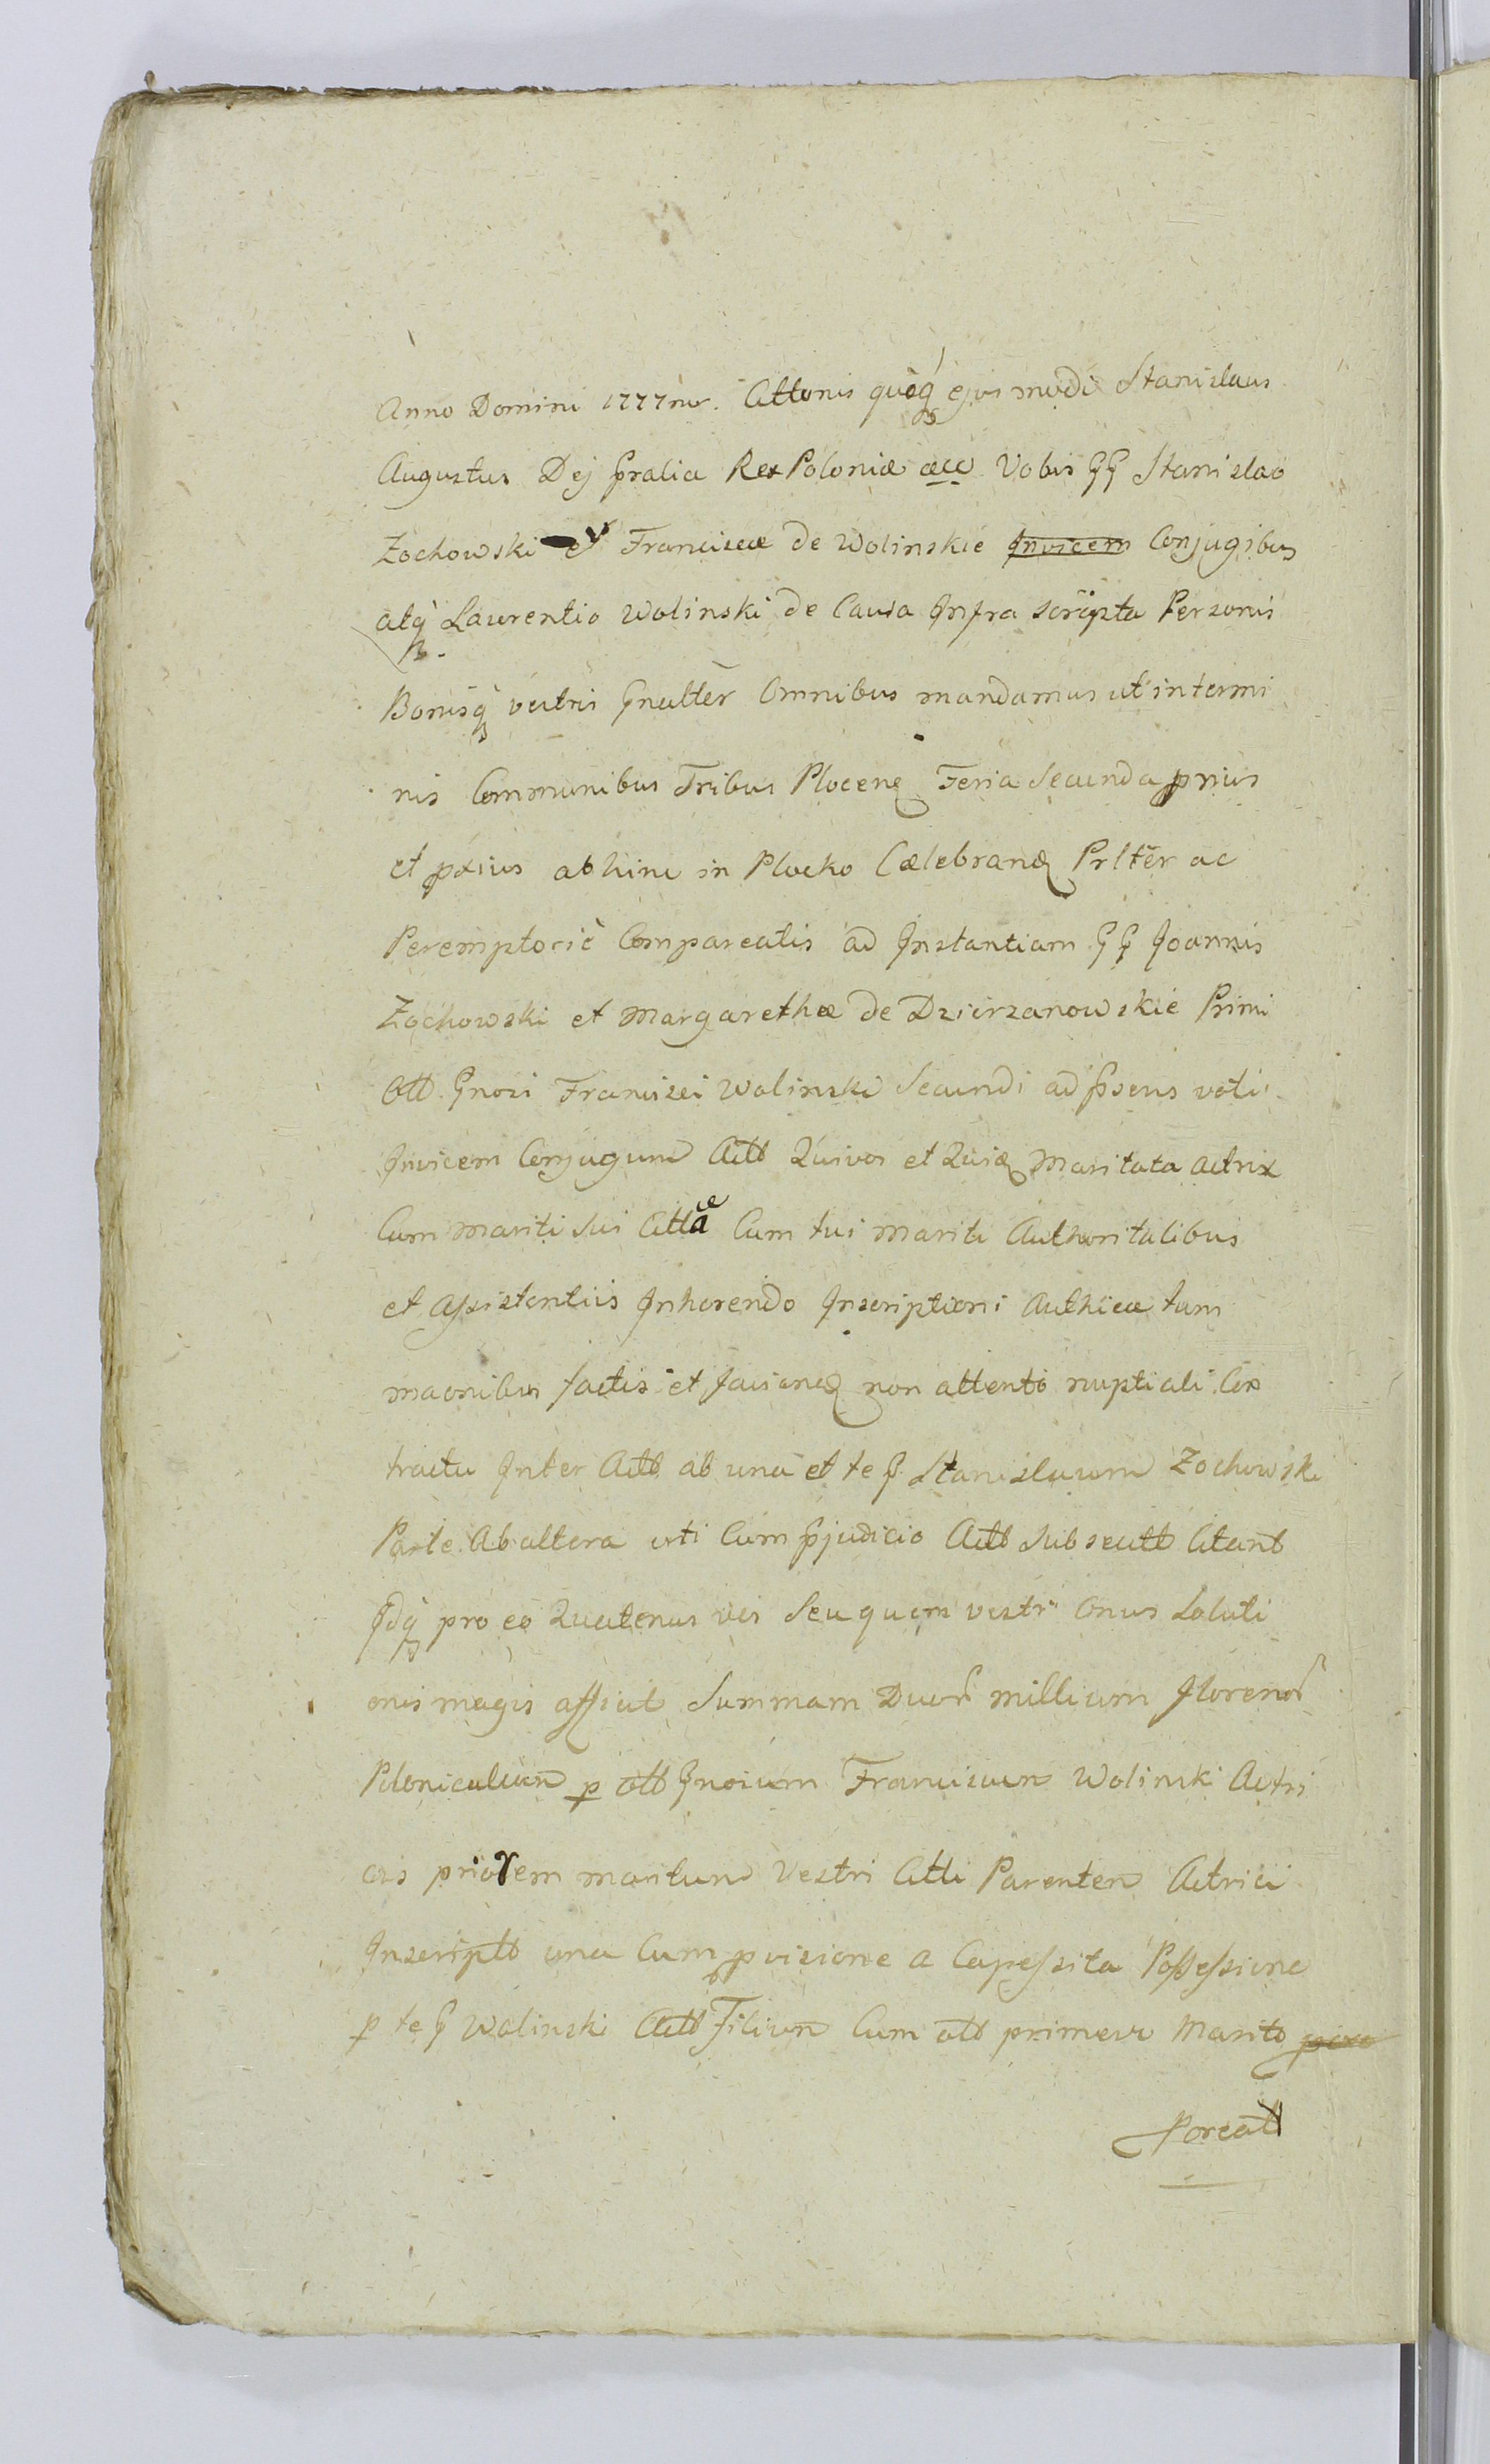 Anno Domini 1777mo. Cittonis quoq ejus modi Stanislaus
Augustus Dej Gratia Rex Poloniæ &cc Vobis GG Stanislao
Zochowski et Franciscæ de Wolinskie Invicem Conjugibus
atq Laurentio Wolinski de Causa Infra scripta Personis
Bonisq vestris Gnalter Omnibus mandamus ut in termi
nis Communibus Tribus Plocen Feria Secunda prius
et pxius abhinc in Plocko Cælebran Prlter ac
Peremptorie Compareatis ad Instantiam GG Joannis
Zochowski et Margarethæ de Dzierzanowskie Primi
Ott Gnosi Francisci Wolinski Secundi ad psens voti
Invicem Conjugum Actt Quivos et Quia Maritata Actrix
Cum Mariti Sui Citta Cum tui Mariti Authoritatibus
et Assistentiis Inherendo Inscriptioni Authicæ tum
maonibus factis et faciend non attento nuptiali Con
tractu Inter Actt ab una et te G Stanislaum Zochowski
Parte Ab altera uti Cum pjudicio Actt Subsecutt Citant
Idq pro eo Quatenus vos Seu quem vestr Onus Soluti
onis magis afficit Summam Duor millium florenor
Polonicalium p ott Gnosum Franciscum Wolinski Actri
cis priorem maritum Vestri Citti Parentem Actrici
Inscriptt una Cum pvisione a Capessita Possessione
p te G Wolinski Actt Filium Cum ott primevo Marito
Poreatt